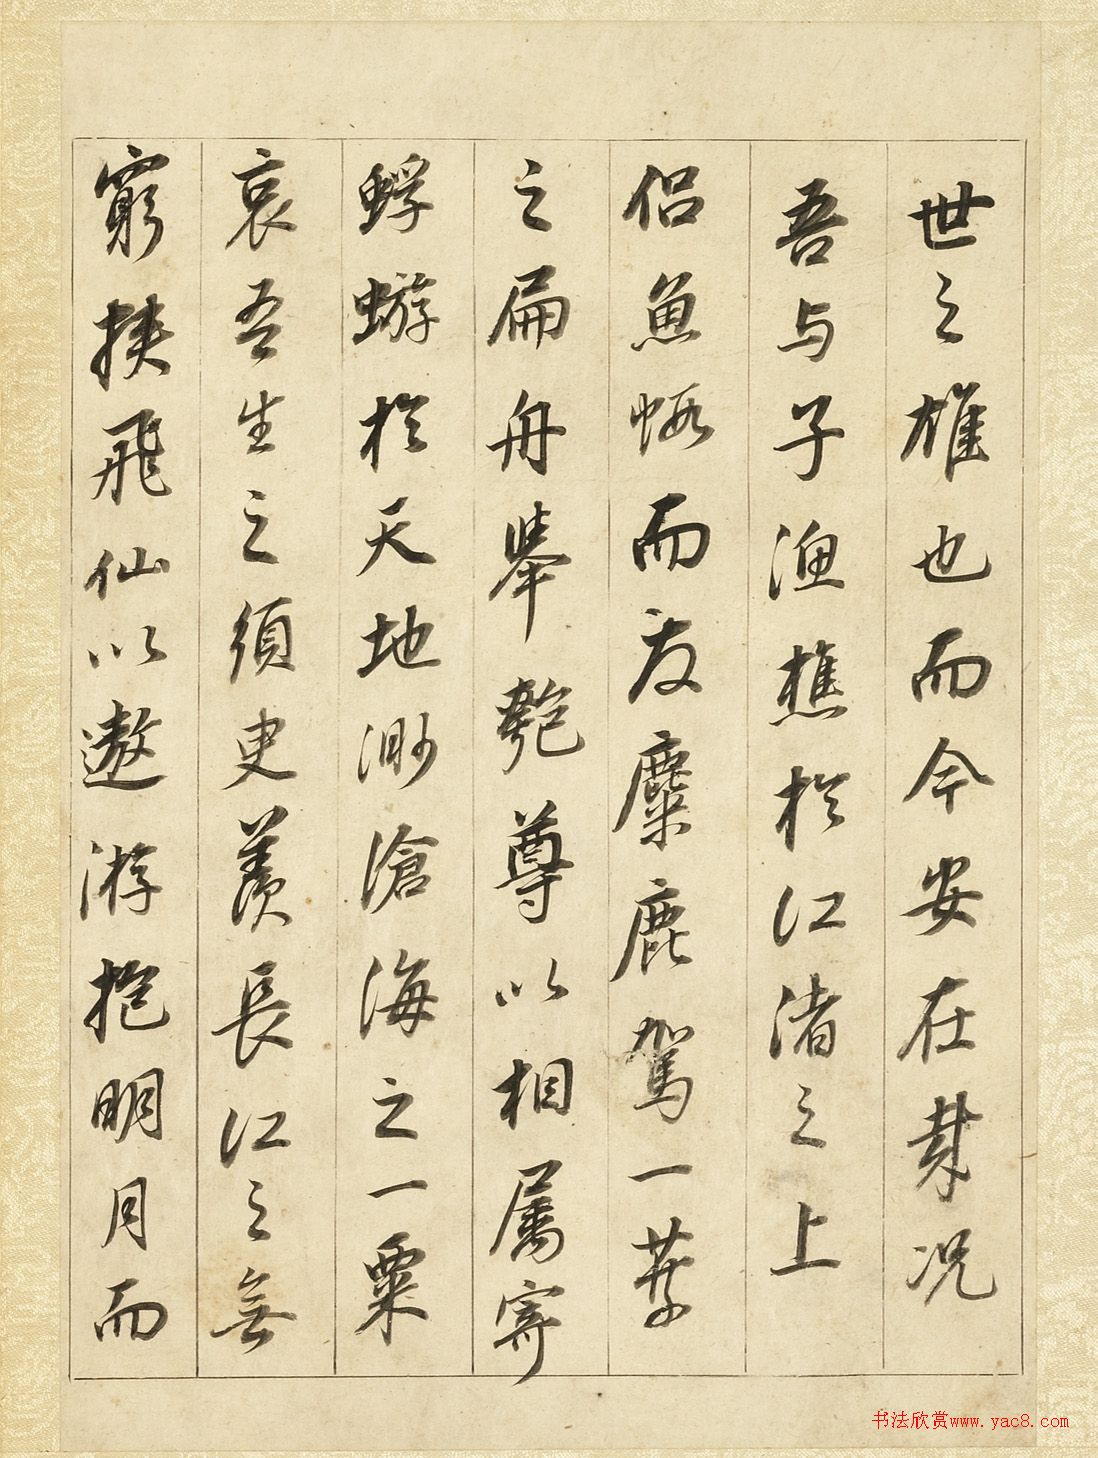 世之雄也而今安在哉况
吾与子漁樵於江渚之上
侣魚蝦而友麋鹿駕一葉
之扁舟舉匏尊以相屬寄
蜉蝣於天地渺滄海之一粟
哀吾生之須臾羨長江之無
窮挾飛仙以遨游抱明月而
书法欣赏www.yac8.com